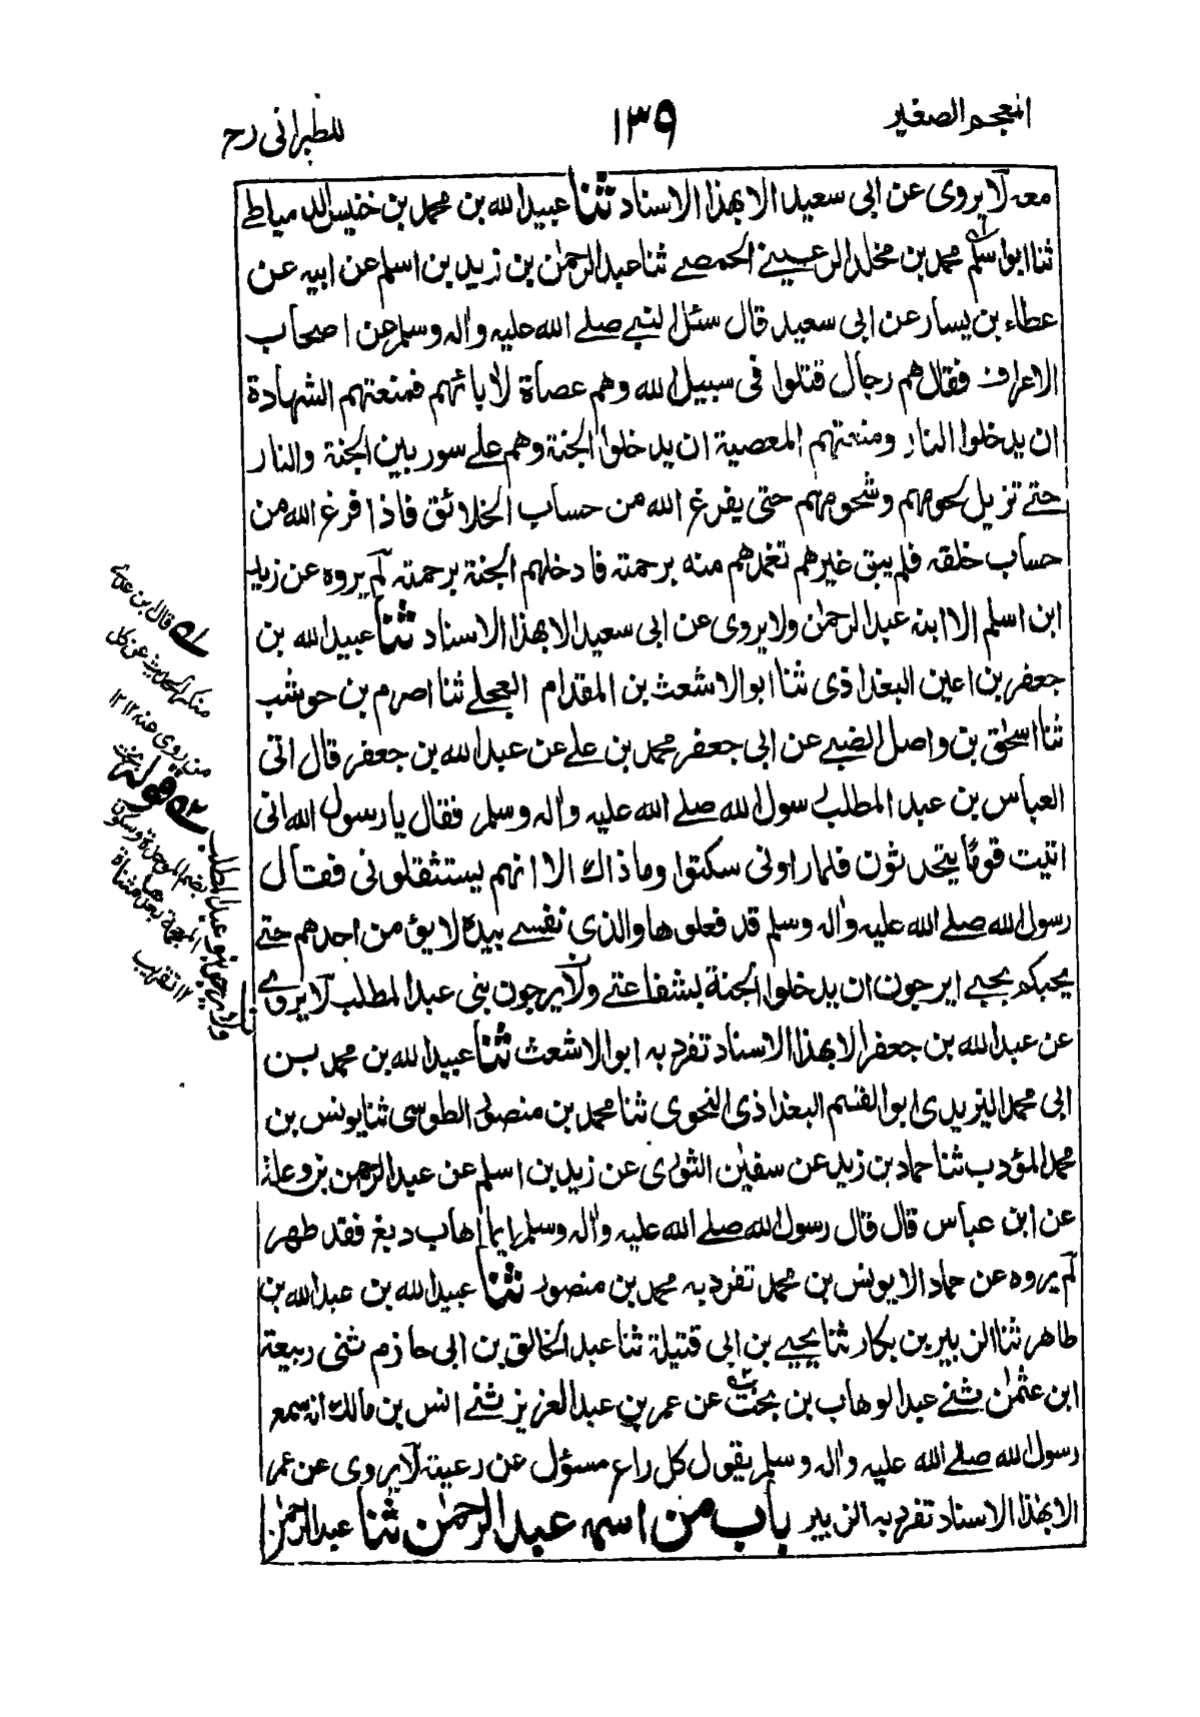 المعجم الصغير
١٣٩
للطبرانی رح
معه لا يروى عن ابی سعيد الا بهذا الاسناد ثنا عبيد الله بن محمد بن خنيس الدمياطے
ثنا ابو اسلم محمد بن مخلد الرعينے الحمصے ثنا عبد الرحمٰن بن زيد بن اسلم عن ابيه عن
عطاء بن يسار عن ابی سعيد قال سئل النبے صلے الله عليه واٰله وسلم عن اصحاب
الاعراف فقال هم رجال قتلوا فی سبيل الله وهم عصاة لاٰبائهم فمنعتهم الشهادة
ان يدخلوا النار ومنعتهم المعصية ان يدخلوا الجنة وهم علے سور بين الجنة والنار
حتے تزيل لحومهم وشحومهم حتى يفرغ الله من حساب الخلائق فاذا فرغ الله من
حساب خلقه فلم يبق غيرهم تغمدهم منه برحمته فادخلهم الجنة برحمته لم يروه عن زيد
ابن اسلم الا ابنه عبد الرحمٰن ولا يروى عن ابی سعيد الا بهذا الاسناد ثنا عبيد الله بن
جعفر بن اعين البغداذی ثنا ابو الاشعث بن المقدام العجلے ثنا اصرم بن حوشب
ثنا اسحٰق بن واصل الضبے عن ابی جعفر محمد بن علے عن عبد الله بن جعفر قال اتى
العباس بن عبد المطلب رسول الله صلے الله عليه واٰله وسلم فقال يا رسول الله انی
اتيت قومًا يتحدثون فلما راونی سكتوا وما ذاك الا انهم يستثقلونی فقال
رسول الله صلے الله عليه واٰله وسلم قد فعلوها والذی نفسے بيده لا يؤمن احدهم حتے
يحبكم بحبے ايرجون ان يدخلوا الجنة بشفاعتے ولا يرجون بنی عبد المطلب لا يروے
عن عبد الله بن جعفر الا بهذا الاسناد تفرد به ابو الاشعث ثنا عبيد الله بن محمد بن
ابی محمد اليزيدی ابو القٰسم البغداذی النحوی ثنا محمد بن منصور الطوسی ثنا يونس بن
محمد المؤدب ثنا حماد بن زيد عن سفيٰن الثوری عن زيد بن اسلم عن عبد الرحمن بن وعلة
عن ابن عباس قال قال رسول الله صلے الله عليه واٰله وسلم ايما اهاب دبغ فقد طهر
لم يروه عن حماد الا يونس بن محمد تفرد به محمد بن منصور ثنا عبيد الله بن عبد الله بن
طاهر ثنا الزبير بن بكار ثنا يحيے بن ابی قتيلة ثنا عبد الخالق بن ابی حازم ثنی ربيعة
ابن عثمٰن ثنے عبد الوهاب بن بخت عن عمر بن عبد العزيز ثنے انس بن مالك انه سمع
رسول الله صلے الله عليه واٰله وسلم يقول كل راع مسؤل عن رعيته لا يروى عن عمر
الا بهٰذا الاسناد تفرد به الزبير باب من اسمه عبد الرحمٰن ثنا عبد الرحمٰن
قال بن عدے
منكر الحديث عن كل
من روى عنه ١٢
٢ے قوله بخت
بضم الموحدة وسكون
المعجمة بعدها مثناة
١٢ تقريب
ولا يرجوها بنو عبد المطلب